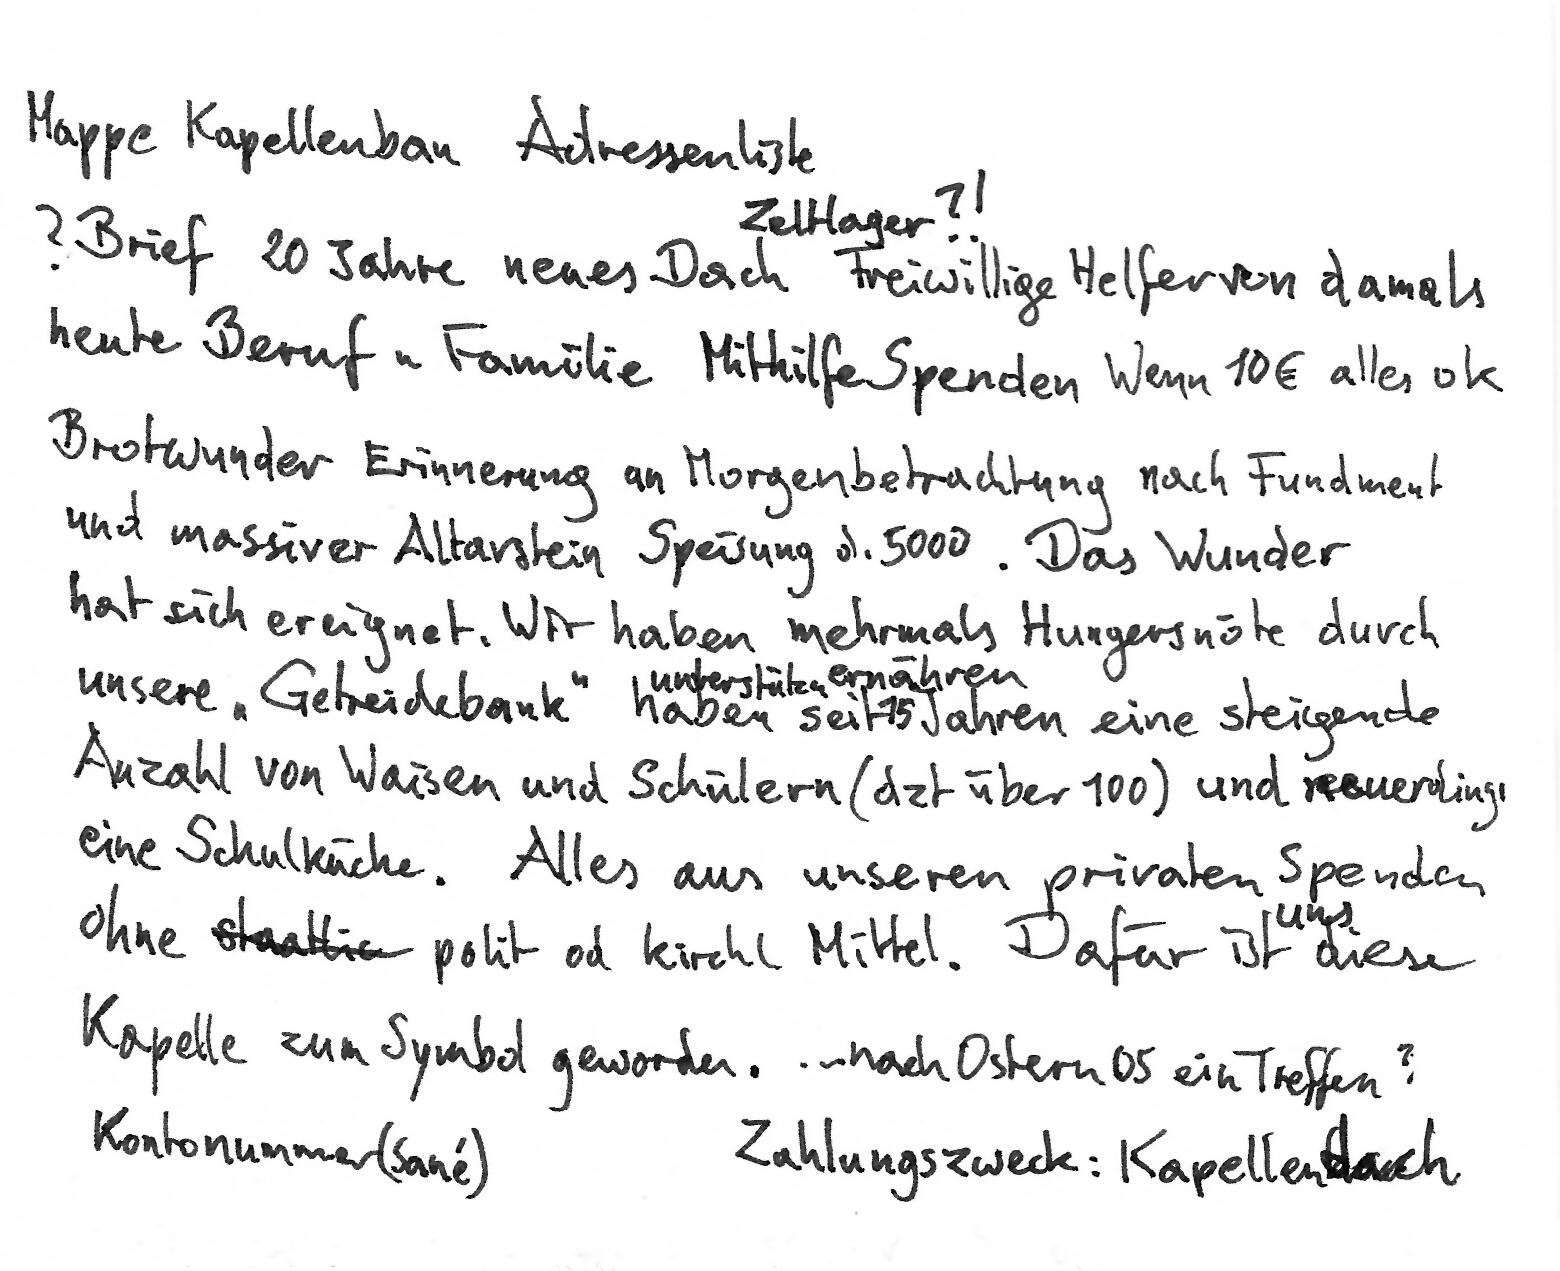 Mappe Kapellenbau Adressenliste
Zeltlager?!
? Brief 20 Jahre neues Dach Freiwillige Helfer von damals
heute Beruf u Familie Mithilfe Spenden Wenn 10€ alles ok
Brotwunder Erinnerung an Morgenbetrachtung nach Fundment
und massiver Altarstein Speisung d. 5000. Das Wunder
hat sich ereignet. Wir haben mehrmals Hungersnöte durch
unterstützen ernähren
unsere „Getreidebank" haben seit 15 Jahren eine steigende
Anzahl von Waisen und Schülern (dzt über 100) und neuerdings
eine Schulküche. Alles aus unseren privaten Spenden
uns
ohne staatlic polit od kirchl Mittel. Dafür ist diese
Kapelle zum Symbol geworden. ... nach Ostern 05 ein Treffen?
Kontonummer (Sané) Zahlungszweck: Kapellendach